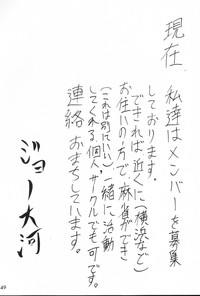 現在、
私達はメンバーを募集
しております。
できれば近くに(横浜など)
お住いの方で、麻雀ができ
(これは別にいい)一緒に活動
してくれる、個人、サークルでも可です。
連絡おまちしています。
ジョー大河
49